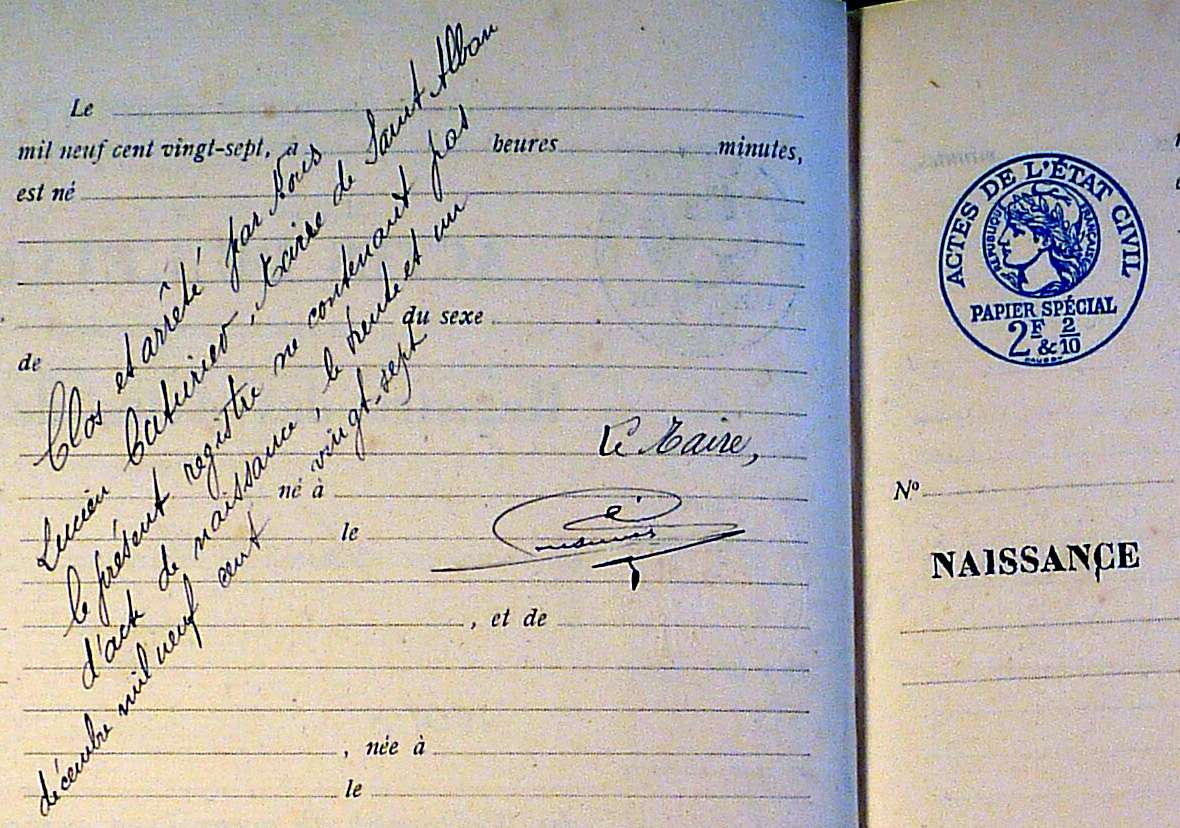 Le
mil neuf cent vingt-sept, à heures minutes,
est né
du sexe
de
né à
le
, et de
, née à
le
Clos et arrêté par Nous
Lucien, Maire de Saint Alban
le présent registre ne contenant pas
d'acte de naissance, le trente et un
décembre mil neuf cent vingt-sept
Le Maire,
ACTES DE L'ÉTAT CIVIL
RÉPUBLIQUE FRANÇAISE
PAPIER SPÉCIAL
2F & 2/10
No
NAISSANCE